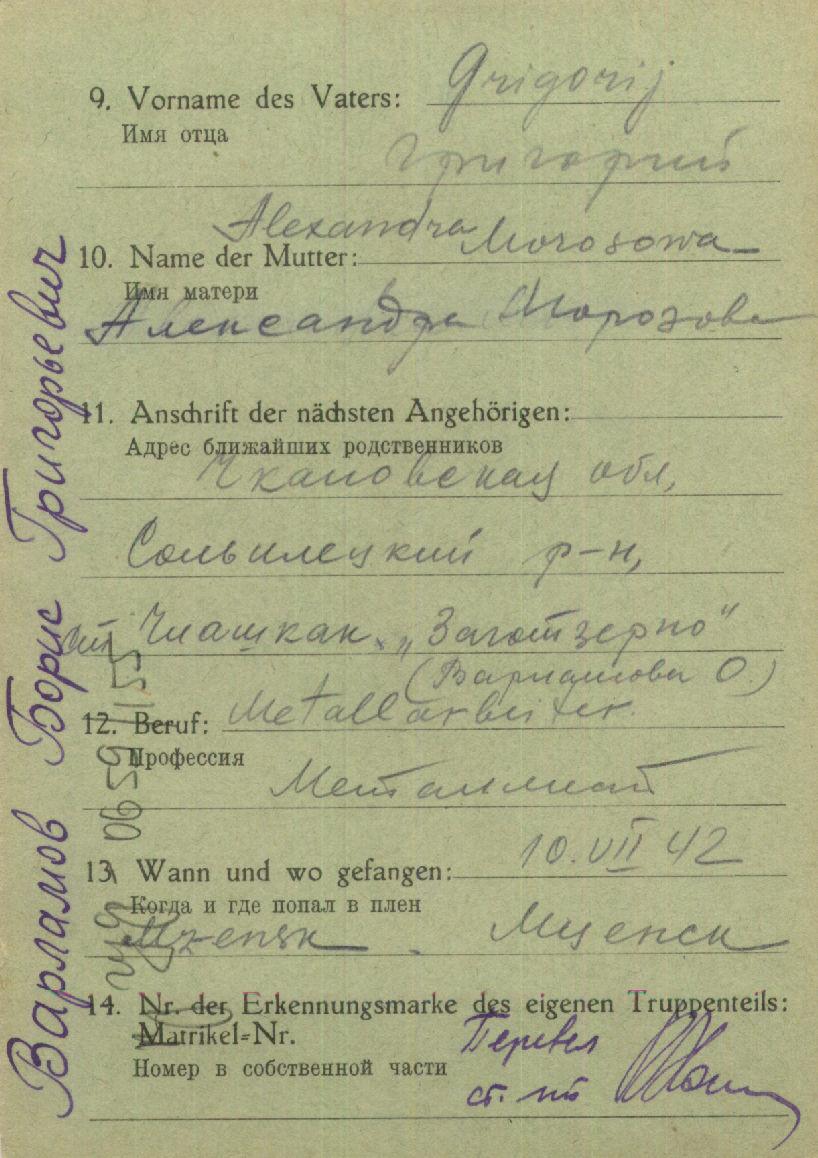 9. Vorname des Vaters: Grigorij
Имя отца
Григорий
Alexandra Morosowa
10. Name der Mutter:
Имя матери
Александра Морозова
11. Anschrift der nächsten Angehörigen:
Адрес ближайших родственников
Чкаловская обл,
Сольилецкий р-н,
"Заготзерно"
(Варламова О.)
12. Beruf: Metallarbeiter
Профессия
Металлист
13. Wann und wo gefangen: 10.VII 42
Когда и где попал в плен
Mzensk Мценск
14. Nr. der Erkennungsmarke des eigenen Truppenteils:
Matrikel-Nr.
Номер в собственной части
Перевел
ст. л-т
Варламов Борис Григорьевич